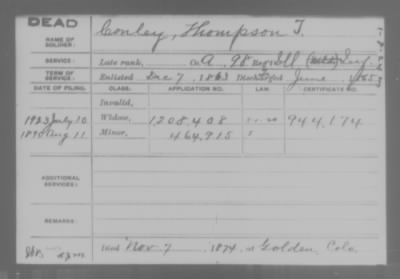 DEAD
NAME OF SOLDIER: Conley, Thompson T.
SERVICE: Late rank, Co. A, 98 Reg't Ill Inf.
TERM OF SERVICE: Enlisted Dec 7, 1863 June 1865
DATE OF FILING. CLASS. APPLICATION NO. LAW. CERTIFICATE NO.
Invalid,
1923 July 10 Widow, 1208.408 944,174
1890 Aug 11 Minor, 464,915
ADDITIONAL SERVICES:
REMARKS:
Died Nov 7 1874, at Golden, Colo.